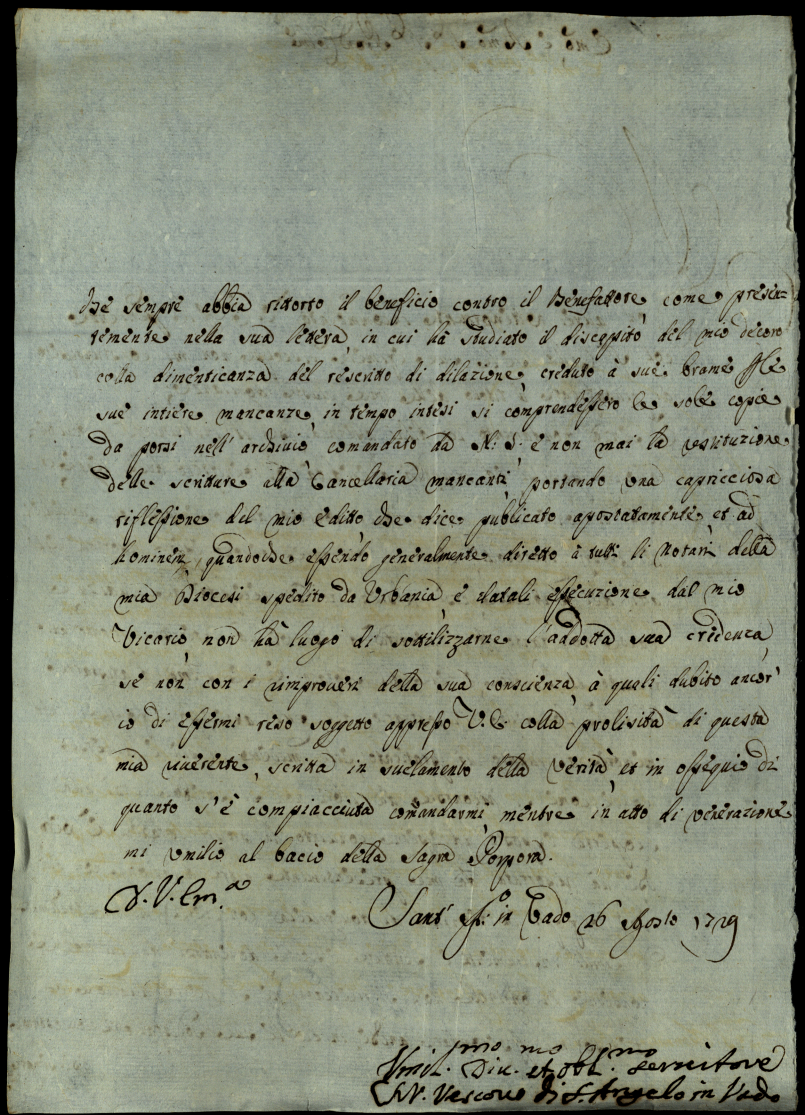 che sempre abbia ritorto il beneficio contro il Benefattore, come presen=
temente nella sua lettera, in cui ha studiato il discapito del mio decoro
colla dimenticanza del rescritto di dilazione, creduto à sue brame le
sue intiere mancanze, in tempo intesi si comprendessero le sole copie
da porsi nell' archivio comandato da N: S: e non mai la restituzione
delle scritture alla Cancellaria mancanti, portando una capricciosa
riflessione del mio editto che dice publicato apostatamente, et ad
hominem, quandoche essendo generalmente diretto à tutti li Notari della
mia Diocesi spedito da Urbania e datali essecuzione dal mio
Vicario, non hà luogo di sottilizzarne l'addotta sua credenza,
se non con i rimproveri della sua conscienza, à quali dubito ancor'
io di essermi reso soggetto appresso V. E. colla prolisità di questa
mia riverente, scritta in svelamento della verità, et in ossequio di
quanto s'è compiacciuta comandarmi, mentre in atto di venerazione
mi umilio al bacio della Sagra Porpora.
D. V. Em.a
Sant' A: in Vado 26 Agosto 1729
Umil.mo Div.mo et obl.mo servitore
Vescovo di S. Angelo in Vado